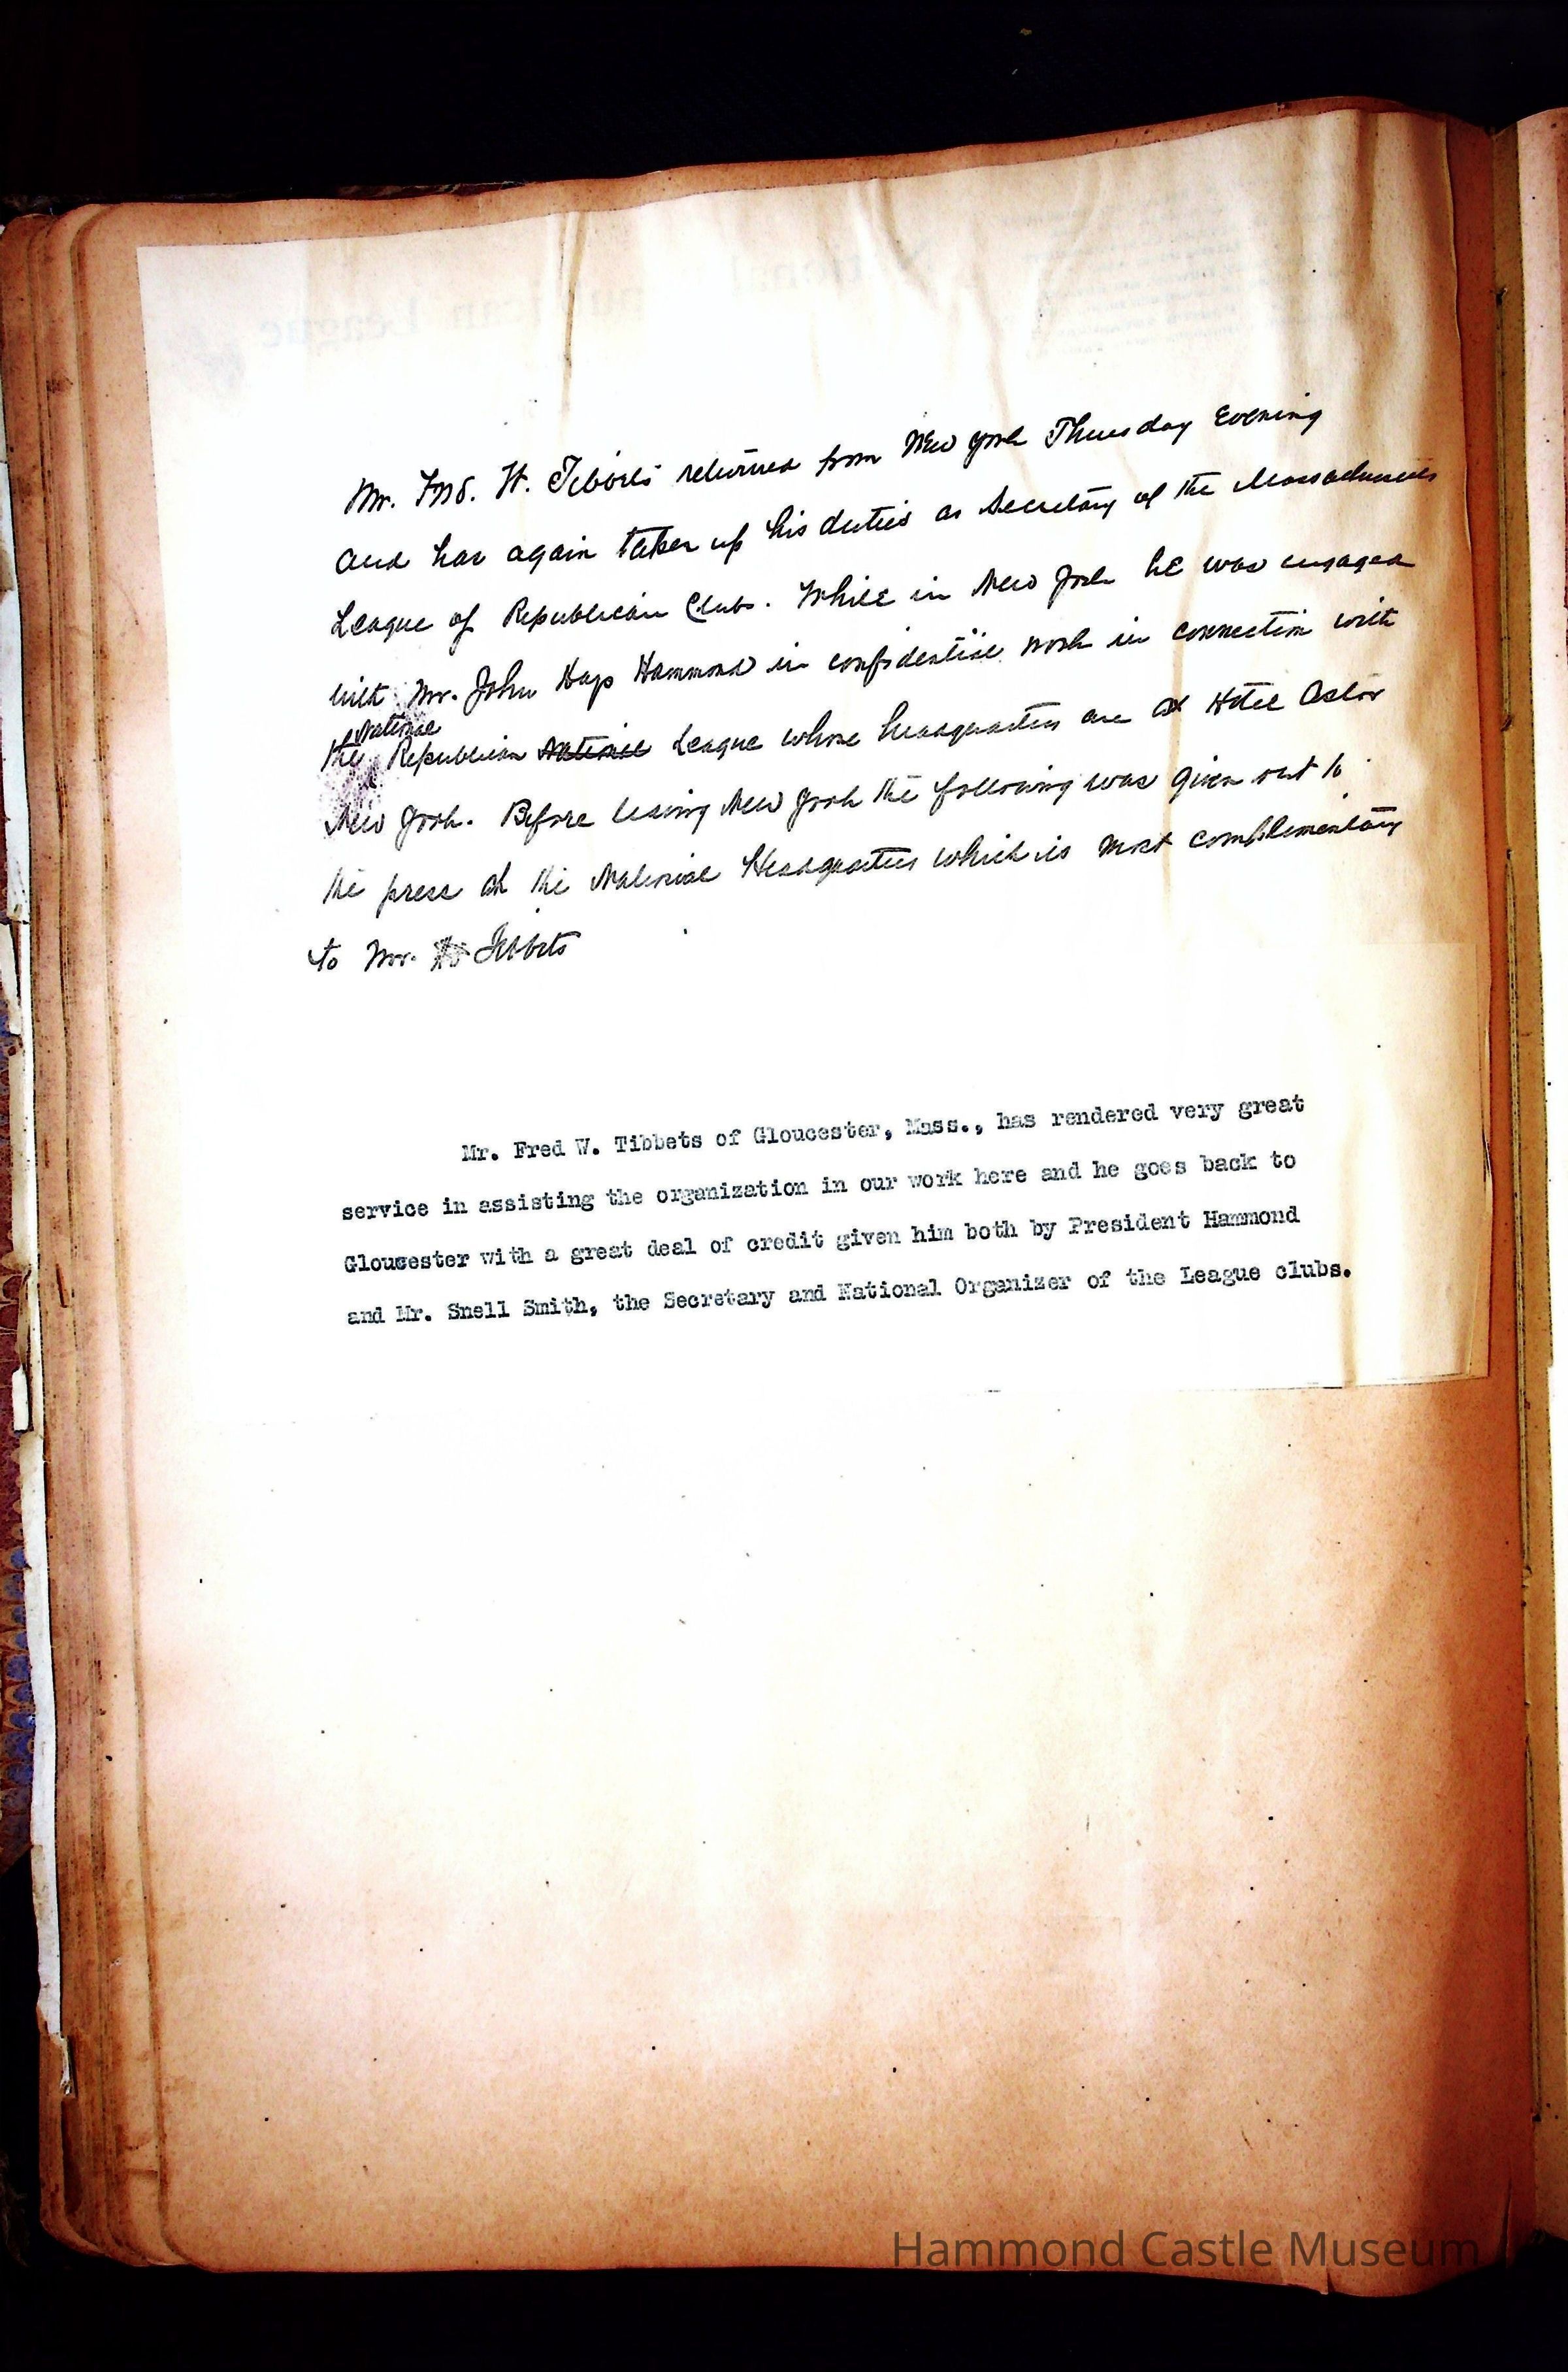 Mr. Fred. W. Tibbets returned from New York Thursday Evening
and has again taken up his duties as Secretary of the Massachusetts
League of Republican Clubs. While in New York he was engaged
with Mr. John Hays Hammond in confidential work in connection with
National
the Republican National League whose headquarters are at Hotel Astor
New York. Before leaving New York the following was given out to
the press at the National Headquarters which is most complimentary
to Mr. Tibbets
Mr. Fred W. Tibbets of Gloucester, Mass., has rendered very great
service in assisting the organization in our work here and he goes back to
Gloucester with a great deal of credit given him both by President Hammond
and Mr. Snell Smith, the Secretary and National Organizer of the League clubs.
Hammond Castle Museum